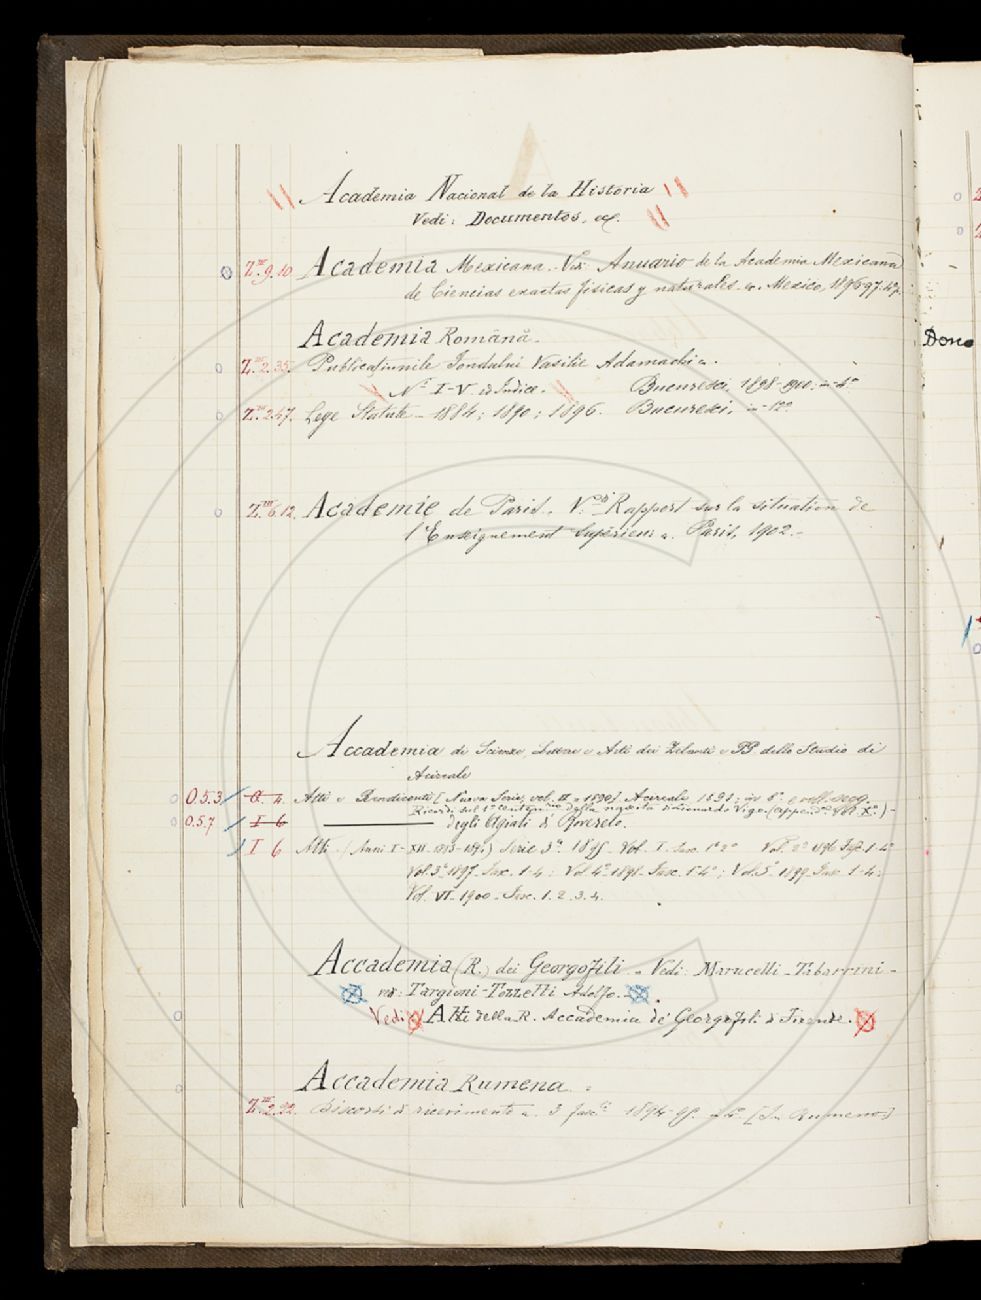 Academia Nacional de la Historia
Vedi: Documentos, ec.
Z.III.9.10 Academia Mexicana. Vedi Anuario de la Academia Mexicana
de Ciencias exactas fisicas y naturales. Mexico, 1896-97.
Academia Română.
Z.III.2.35. Publicațiunile Fondului Vasilie Adamachi
N.i I-V ed Indice. Bucuresci 1898-1900; in-4°
Z.III.2.47. Lege Statute - 1884; 1890; 1896. Bucuresci, in-12°.
Z.III.6.12. Academie de Paris. V. Rapport sur la situation de
l'Enseignement Supérieur Paris, 1902.
Accademia di Scienze, Lettere e Arti dei Zelanti e PP dello Studio di
Acireale
0.5.3 4. Atti e Rendiconti [Nuova Serie, vol. II - 1890] Acireale, 1891; in 8°
Ricordi sul 1° centenario della nascita di Leonardo Vigo (append. Vol. X°.)
0.5.7 I 6 degli Agiati di Rovereto.
I 6 Atti (Anni I-XII 1883-1894) Serie 3ª 1895 Vol. I. Fasc. 1° 2° Vol. 2° 1896 Fasc. 1-4
Vol. 3° 1897. Fasc. 1-4; Vol. 4° 1898. Fasc. 1-4; Vol. 5° 1899. Fasc. 1-4;
Vol. VI - 1900 - Fasc. 1. 2. 3. 4.
Accademia (R.) dei Georgofili - Vedi: Marucelli - Tabarrini -
Targioni-Tozzetti Adolfo.
Vedi Atti della R. Accademia dei Georgofili di Firenze.
Accademia Rumena.
Z.III.2.22. Discorsi di ricevimento 3 fasc. 1894-95. in 4° [In Rumeno]
Dono